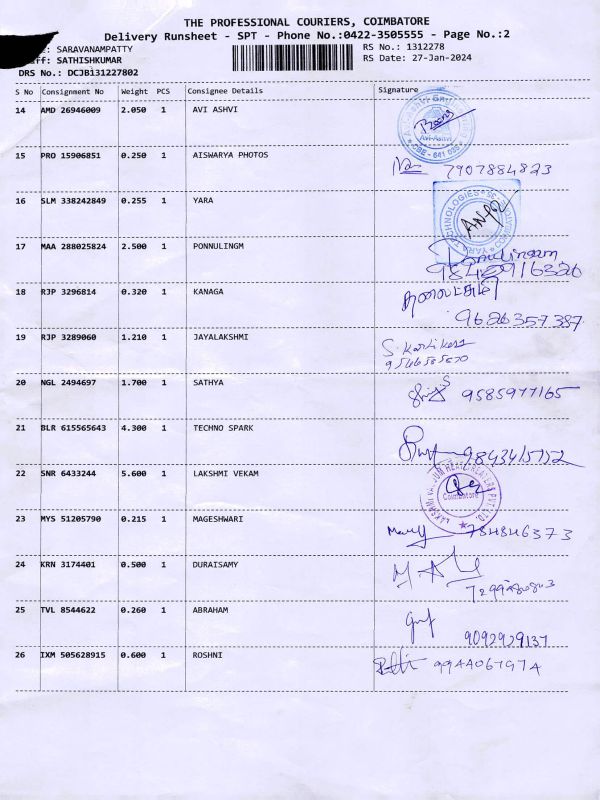 THE PROFESSIONAL COURIERS, COIMBATORE
Delivery Runsheet - SPT - Phone No.:0422-3505555 - Page No.:2
: SARAVANAMPATTY RS No.: 1312278
: SATHISHKUMAR RS Date: 27-Jan-2024
DRS No.: DCJB131227802
S No Consignment No Weight PCS Consignee Details Signature
14 AMD 26946009 2.050 1 AVI ASHVI
Avi-Ashvi
CBE - 641 035
15 PRO 15906851 0.250 1 AISWARYA PHOTOS
7907884823
16 SLM 338242849 0.255 1 YARA
YARA TECHNOLOGIES
17 MAA 288025824 2.500 1 PONNULINGM
Ponnulingam
18 RJP 3296814 0.320 1 KANAGA
9626357387
19 RJP 3289060 1.210 1 JAYALAKSHMI
S. Karthikesa
20 NGL 2494697 1.700 1 SATHYA
9585977165
21 BLR 615565643 4.300 1 TECHNO SPARK
9843415752
22 SNR 6433244 5.600 1 LAKSHMI VEKAM
Coimbatore
23 MYS 51205790 0.215 1 MAGESHWARI
24 KRN 3174401 0.500 1 DURAISAMY
25 TVL 8544622 0.260 1 ABRAHAM
9092929137
26 IXM 505628915 0.600 1 ROSHNI